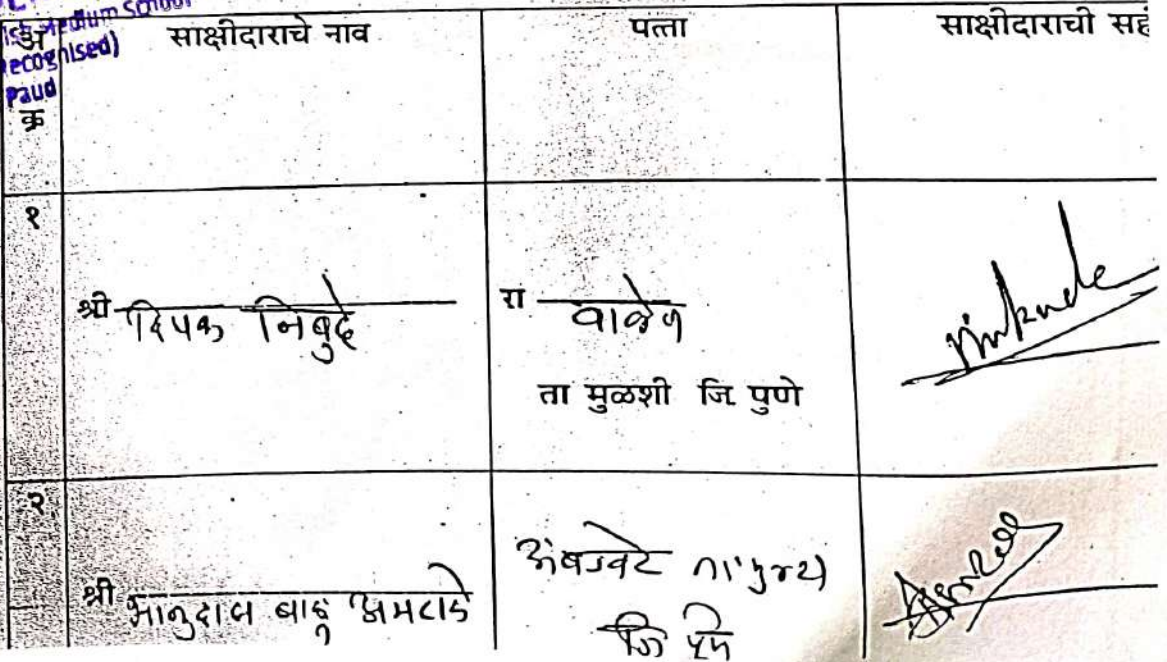 Medium School
ecognised)
Paud
अ
क्र
साक्षीदाराचे नाव
पत्ता
साक्षीदाराची सह
१
श्री दिपक निबुदे
रा वाळेण
ता मुळशी जि पुणे
२
श्री भानुदास बाबू अमराळे
अंबडवेट
जि पुणे